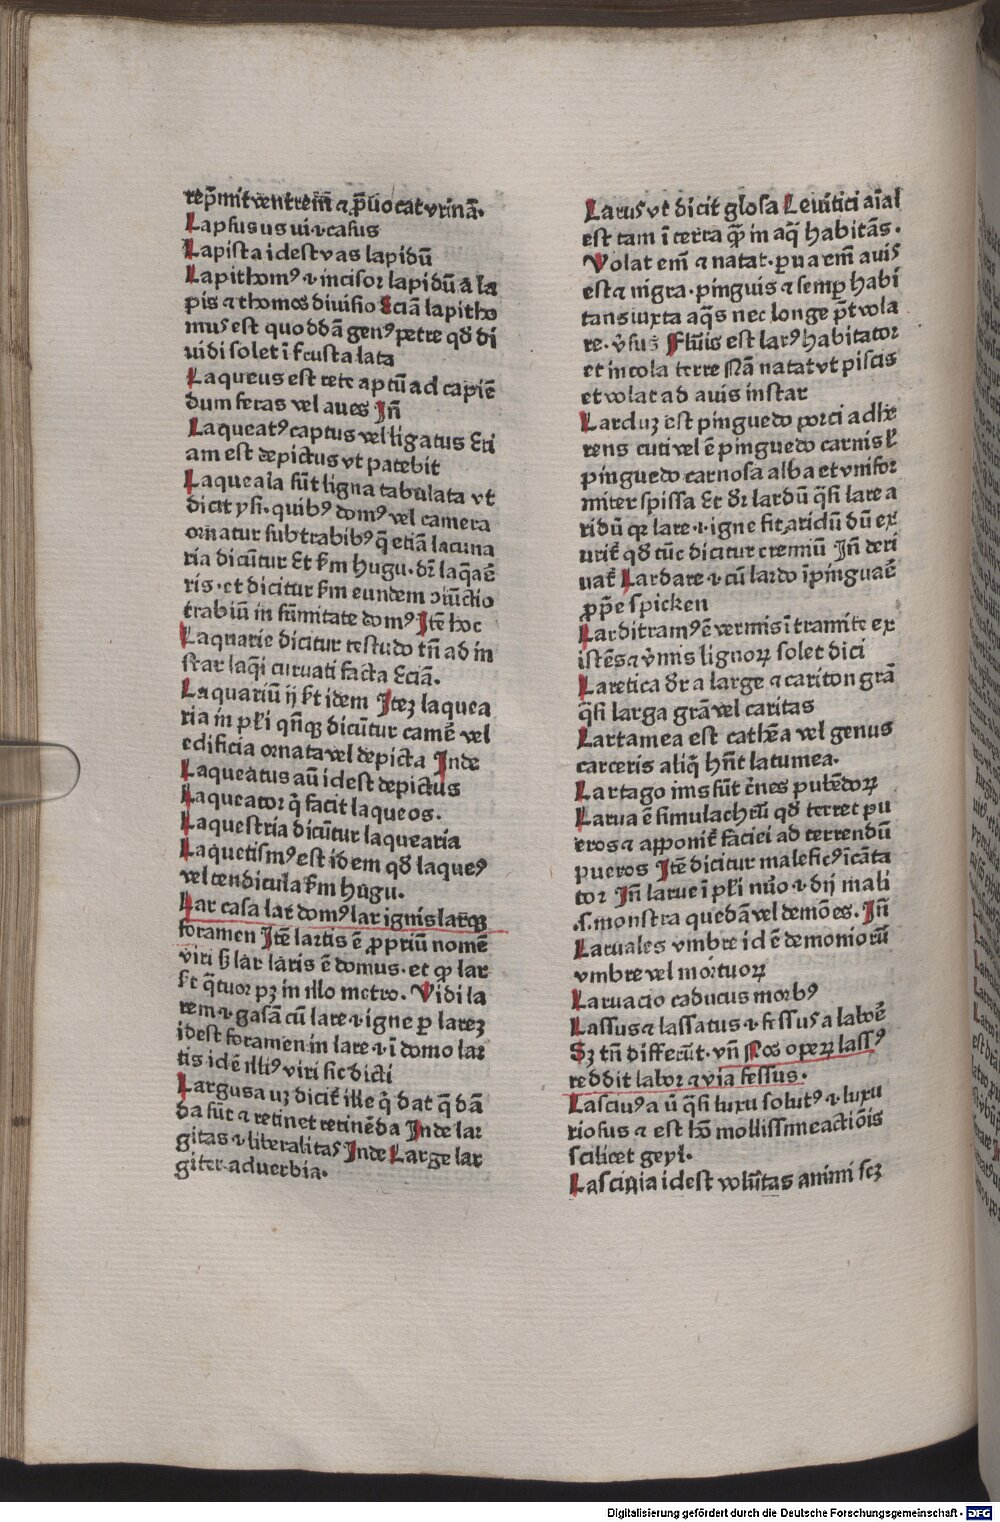 rep̄mit ventrem̄ ⁊ p̄uocat vrinā.
Lapsus us ui ⁊ casus
Lapista idest vas lapidū
Lapithomꝰ ⁊ incisor lapidū a la
pis ⁊ thomos diuisio Eciā lapitho
mus est quoddā genꝰ petre qd̄ di
uidi solet ī frusta lata
Laqueus est rete aptū ad capiē
dum feras vel aues Jn̄
Laqueatꝰ captus vel ligatus Eti
am est depictus vt patebit
Laqueaīa sūt ligna tabulata vt
dicit ysi. quibꝰ domꝰ vel camera
ornatur sub trabibꝰ q̄ etiā lacuna
ria dicūtur Et k̄m hugu. dr̄ laq̄a ē
ris. et dicitur k̄m eundem ↄiūctio
trabiū in sūmitate domꝰ Jtē hoc
Laquarie dicitur testudo tn̄ ad in
star laq̄i curuati facta Eciā.
Laquariū ij k̄t idem Jteꝫ laquea
ria in pl̄i qn̄qꝫ dicūtur camē vel
edificia ornata vel depicta Jnde
Laqueatus aū idest depictus
Laqueator q̄ facit laqueos.
Laquestria dicūtur laquearia
Laquetismꝰ est idem qd̄ laqueꝰ
vel tendicula k̄m hugu.
Lar casa lar domꝰ lar ignis larqꝫ
foramen Jtē lartis ē propriū nomē
viri sꝫ lar laris ē domus. et qꝫ lar
k̄t q̄tuor pꝫ in illo metro. Vidi la
rem ⁊ gasā cū lare ⁊ igne p lareꝫ
idest foramen in lare ⁊ ī domo lar
tis id ē illiꝰ viri sic dicti
Largus a uꝫ dicit̄ ille q̄ dat q̄ dā
da sūt ⁊ retinet retinēda Jnde lar
gitas ⁊ literalitas Jnde Large lar
giter aduerbia.
Larus vt dicit glosa Leuitici aīal
est tam ī terra qꝫ in aq̄ habitās.
Volat em̄ ⁊ natat. parua em̄ auis
est ⁊ nigra. pinguis ⁊ semp habi
tans iuxta aq̄s nec longe pt̄ vola
re. v̄sus Flūis est larꝰ habitator
et incola terre Nā natat vt piscis
et volat ad auis instar
Larduꝫ est pinguedo porci adhe
rens cuti vel ē pinguedo carnis l̄
pinguedo carnosa alba et vnifor
miter spissa Et dr̄ lardū q̄si lare a
ridū qꝛ lare .i. igne fit aridū dū ex
urit̄ qd̄ tūc dicitur cremiū Jn̄ deri
uat̄ Lardare ⁊ cū lardo īpinguaē
prop̄e spicken
Larditramꝰ ē vermis ī tramite ex
istēs ⁊ v̄mis lignoꝝ solet dici
Laretica dr̄ a large ⁊ cariton grā
q̄si larga grā vel caritas
Lartamea est cathēa vel genus
carceris aliq̄ hn̄t latumea.
Lartago inis sūt c̄nes pubēdoꝝ
Larua ē simulachrū qd̄ terret pu
eros ⁊ apponit̄ faciei ad terrendū
pueros Jtē dicitur maleficꝰ īcāta
tor Jn̄ larue ī pl̄i nūo ⁊ dij mali
.s. monstra quedā vel demōes. Jn̄
Laruales vmbre id ē demoniorū
vmbre vel mortuoꝝ
Laruacio caducus morbꝰ
Lassus ⁊ lassatus ⁊ fessus a laboē
Sꝫ tn̄ differūt. vn̄ Nos opeꝝ lassꝰ
reddit labor ⁊ via fessus.
Lasciuꝰ a ū q̄si luxu solutꝰ ⁊ luxu
riosus ⁊ est hō mollissime actiōis
scilicet geyl.
Lasciuia idest volūtas animi scꝫ
Digitalisierung gefördert durch die Deutsche Forschungsgemeinschaft - DFG